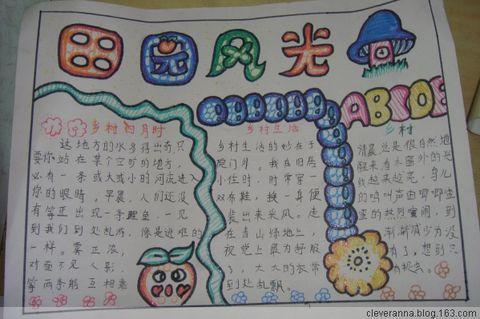 田园风光
ABCDE
乡村四月时
这地方的水多得出奇只
要你站在某个空旷的地方,
必有一条或大或小的河流进入
你的眼睛。早晨,人们还没
有等
出现一
鲤鱼,一见
到我们到处乱游,像是逃难的
一样。雾正浓,
对面不见人影,
乡村生活
乡村生活的妙在于
门外。我在旧居
小住时,时常穿一
双布鞋,换一身便
装出来采风。走
在青山绿地上,
视觉上最为舒服
了,大大的衣带
到处乱飘
乡村
清晨总是很自然地
醒来看未窗外的天
越来越亮,鸟儿
的鸣叫声由唧唧
的热烈喧闹,到
渐渐减少为没
有了,想到只
cleveranna.blog.163.com